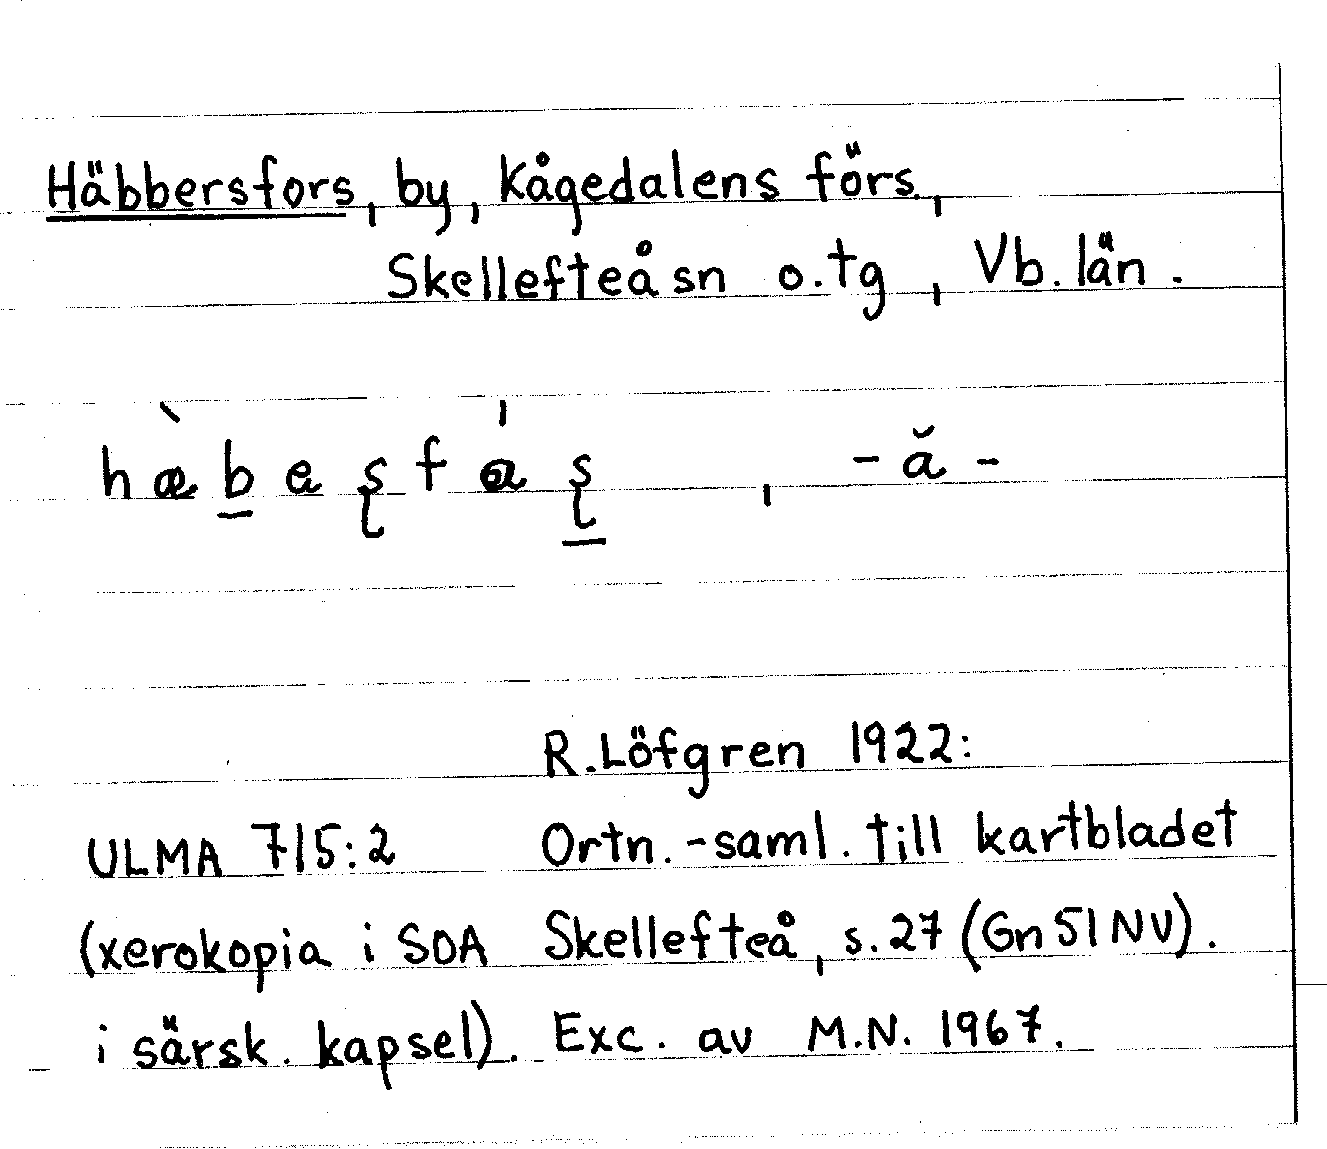 Häbbersfors, by, Kågedalens förs.,
Skellefteå sn o. tg, Vb. län.
hæ̀b̲eʂfáʂ̲, -ă-
R. Löfgren 1922:
ULMA 715:2 Ortn.-saml. till kartbladet
(xerokopia i SOA Skellefteå, s. 27 (Gn 51 NV).
i särsk. kapsel). Exc. av M.N. 1967.